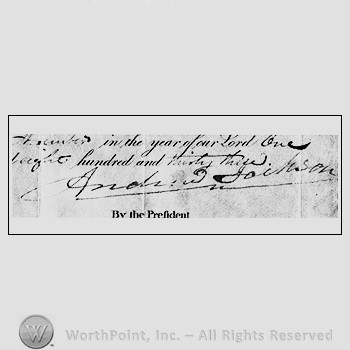 in the year of our Lord One
eight hundred and thirty three.
Andrew Jackson
By the President
W WorthPoint, Inc. – All Rights Reserved